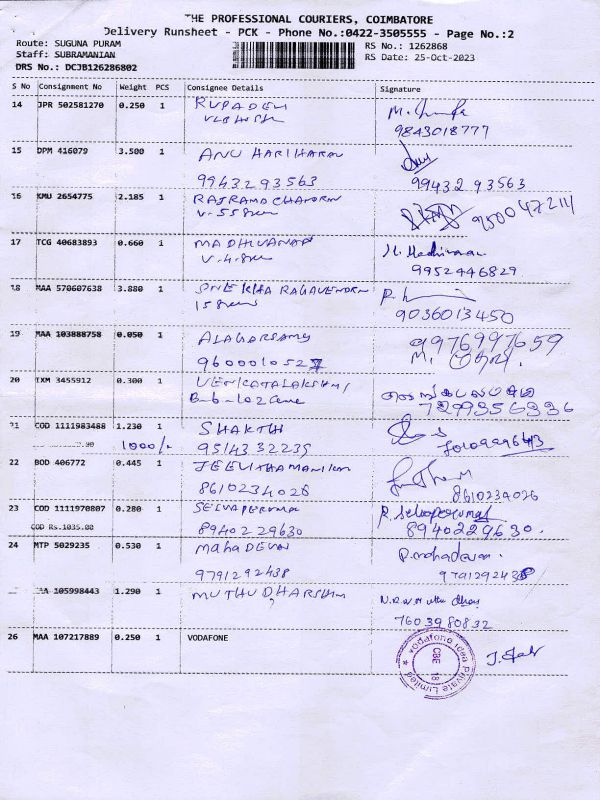 THE PROFESSIONAL COURIERS, COIMBATORE
Delivery Runsheet - PCK - Phone No.:0422-3505555 - Page No.:2
Route: SUGUNA PURAM
Staff: SUBRAMANIAN
DRS No.: DCJB126286802
RS No.: 1262868
RS Date: 25-Oct-2023
S No Consignment No Weight PCS Consignee Details Signature
14 JPR 502581270 0.250 1 RUPADEVI
9843018777
15 DPM 416079 3.500 1 ANU HARIHARAN
99432 93563 99432 93563
16 KMU 2654775 2.185 1 RAJRAMACHANDRAN
9500047211
17 TCG 40683893 0.660 1 MADHIVANAN
9952446829
18 MAA 570607638 3.880 1 SNEKHA RAGAVENDRA
9036013450
19 MAA 103888758 0.050 1 ALAGARSAMY 9976997659
9600010527
20 TXM 3455912 0.300 1 VENKATALAKSHMI
7299356936
21 COD 1111983488 1.230 1 SHAKTHI
1000/- 9514332235
22 BOD 406772 0.445 1 JEEVITHAMANIKAM
8610234026 8610234026
23 COD 1111970807 0.280 1 SELVAPERUMAL R. Selvaperumal
COD Rs.1035.00 8940229630 8940229630.
24 MTP 5029235 0.530 1 MahaDEVAN P. mahadevan
9791292438 9791292438
105998443 1.290 1 MUTHUDHARSHIN
7603980832
26 MAA 107217889 0.250 1 VODAFONE
Vodafone Idea Private Limited
CBE 18